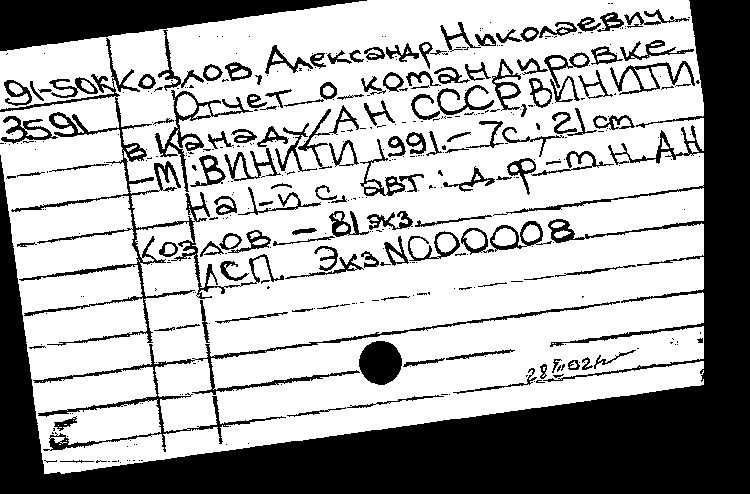 91-50К Козлов, Александр Николаевич.
3591 Отчет о командировке
в Канаду / АН СССР, ВИНИТИ.
– М.: ВИНИТИ, 1991. – 7с.; 21 см.
На 1-й с. авт.: д. ф.-м. н. А.Н.
Козлов. – 81 экз.
ДСП. Экз. N000008.
Б